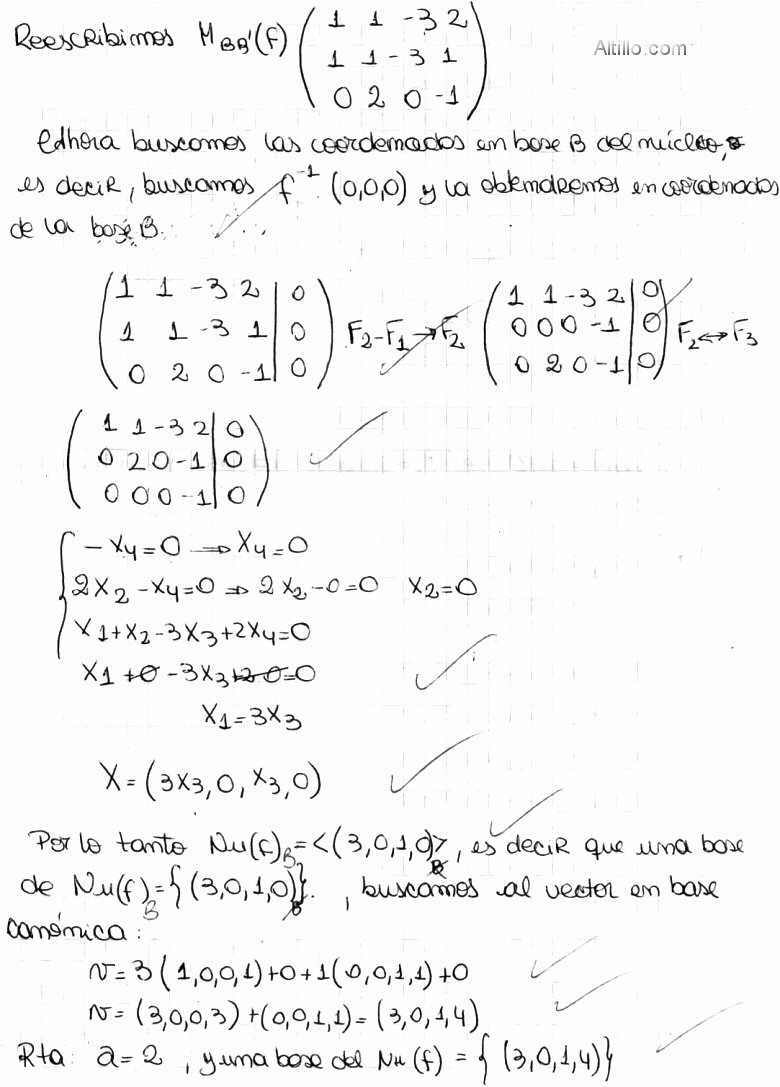 Reescribimos M_BB'(f) ( 1 1 -3 2
1 1 -3 1
0 2 0 -1 )
Altillo.com
Ahora buscamos las coordenadas en base B del núcleo,
es decir, buscamos f⁻¹ (0,0,0) y la obtendremos en coordenadas
de la base B.
( 1 1 -3 2 | 0
1 1 -3 1 | 0
0 2 0 -1 | 0 ) F₂-F₁→F₂
( 1 1 -3 2 | 0
0 0 0 -1 | 0
0 2 0 -1 | 0 ) F₂↔F₃
( 1 1 -3 2 | 0
0 2 0 -1 | 0
0 0 0 -1 | 0 )
{ -X₄=0 ⇒ X₄=0
2X₂-X₄=0 ⇒ 2X₂-0=0 X₂=0
X₁+X₂-3X₃+2X₄=0
X₁+0-3X₃+2·0=0
X₁=3X₃
X=(3X₃,0,X₃,0)
Por lo tanto Nu(f)_B=<(3,0,1,0)>, es decir que una base
de Nu(f)_B={(3,0,1,0)}. , buscamos al vector en base
canónica:
v=3(1,0,0,1)+0+1(0,0,1,1)+0
v=(3,0,0,3)+(0,0,1,1)=(3,0,1,4)
Rta: a=2 , y una base del Nu(f)={(3,0,1,4)}